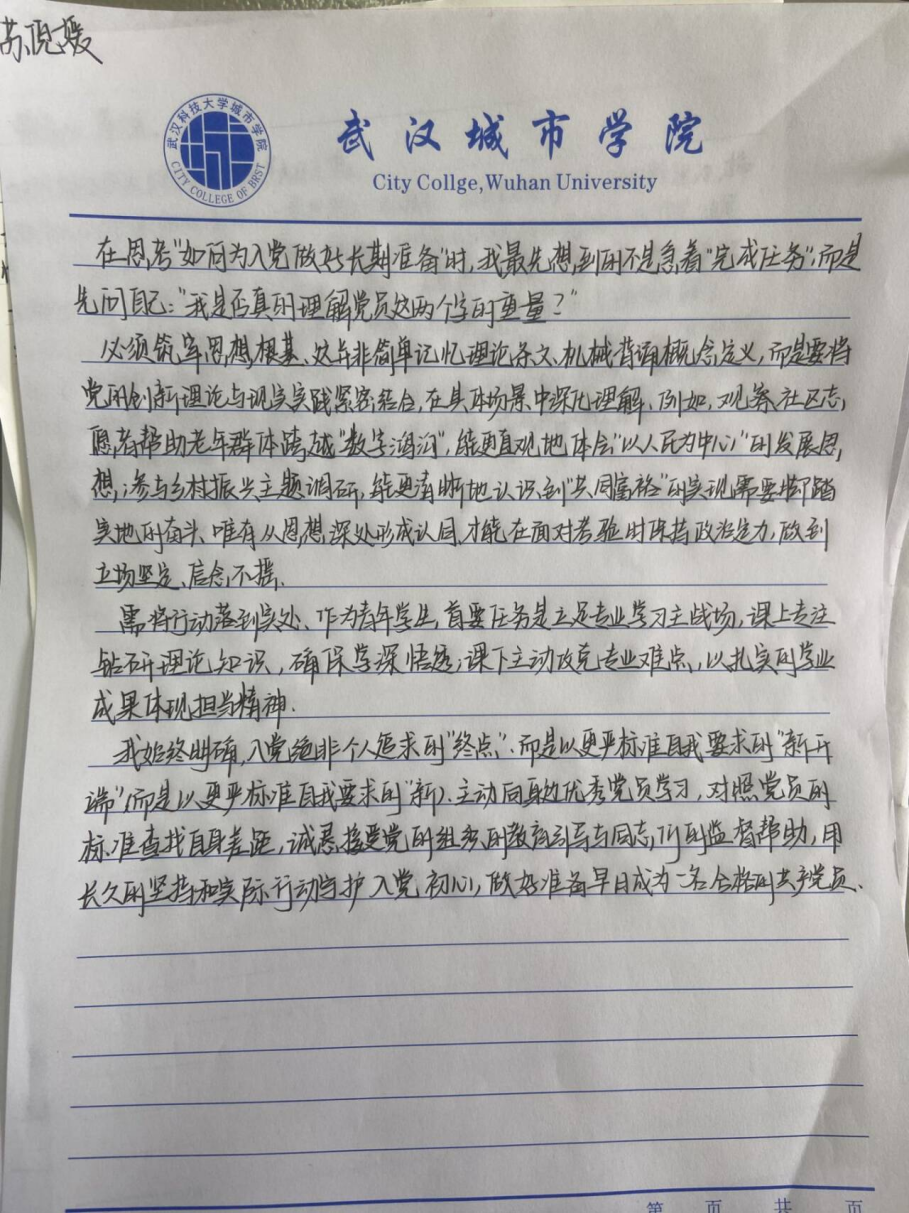 苏倪媛
武汉科技大学城市学院
CITY COLLEGE OF BRST
武汉城市学院
City Collge,Wuhan University
在思考"如何为入党做好长期准备"时,我最先想到的不是急着"完成任务",而是
先问自己:"我是否真的理解党员这两个字的重量?"
必须筑牢思想根基、这并非简单记忆理论条文、机械背诵概念定义,而是要将
党的创新理论与现实实践紧密结合,在具体场景中深化理解、例如,观察社区志
愿者帮助老年群体跨越"数字鸿沟",能更直观地体会"以人民为中心"的发展思
想;参与乡村振兴主题调研,能更清晰地认识到"共同富裕"的实现需要脚踏
实地的奋斗、唯有从思想深处形成认同,才能在面对考验时保持政治定力,做到
立场坚定、信念不摇、
需将行动落到实处、作为青年学生,首要任务是立足专业学习主战场,课上专注
钻研理论知识,确保学深悟透;课下主动攻克专业难点,以扎实的学业
成果体现担当精神.
我始终明确,入党绝非个人追求的"终点",而是以更严标准自我要求的"新开
端"(而是以更严标准自我要求的"新)、主动向身边优秀党员学习,对照党员的
标准查找自身差距,诚恳接受党的组织的教育引导与同志们的监督帮助,用
长久的坚持和实际行动守护入党初心,做好准备早日成为一名合格的共产党员、
第 页 共 页